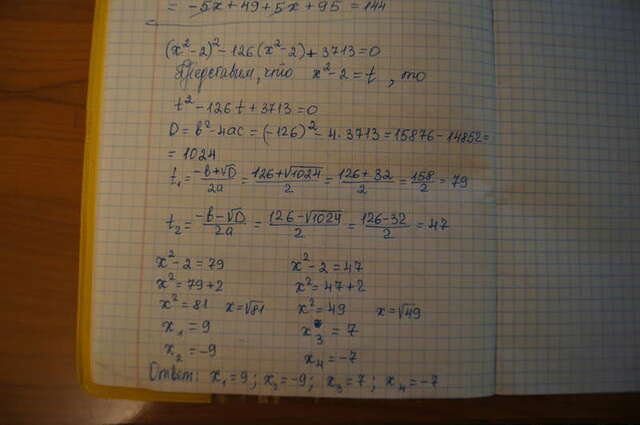 = -5x + 49 + 5x + 95 = 144
(x²-2)² - 126(x²-2) + 3713 = 0
Представим, что x²-2 = t, то
t² - 126t + 3713 = 0
D = b² - 4ac = (-126)² - 4·3713 = 15876 - 14852 =
= 1024
t₁ = (-b+√D)/2a = (126+√1024)/2 = (126+32)/2 = 158/2 = 79
t₂ = (-b-√D)/2a = (126-√1024)/2 = (126-32)/2 = 47
x²-2 = 79 x²-2 = 47
x² = 79+2 x² = 47+2
x² = 81 x = √81 x² = 49 x = √49
x₁ = 9 x₃ = 7
x₂ = -9 x₄ = -7
Ответ: x₁ = 9; x₂ = -9; x₃ = 7; x₄ = -7